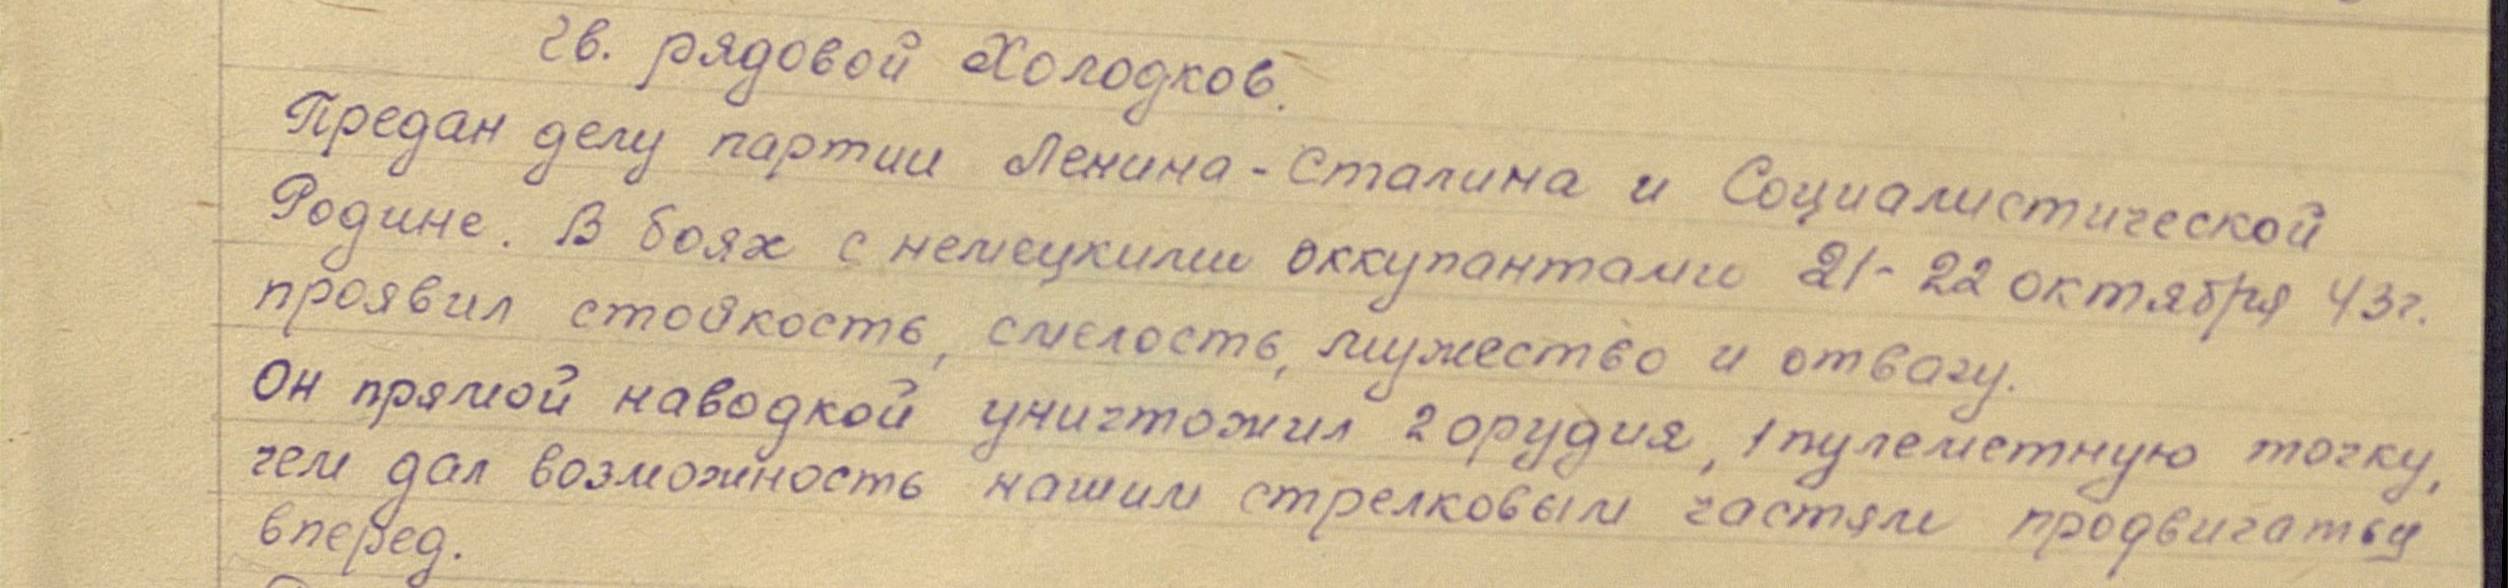 гв. рядовой Холодков.
Предан делу партии Ленина - Сталина и Социалистической
Родине. В боях с немецкими оккупантами 21-22 октября 43г.
проявил стойкость, смелость, мужество и отвагу.
Он прямой наводкой уничтожил 2 орудия, 1 пулеметную точку,
чем дал возможность нашим стрелковым частям продвигаться
вперед.